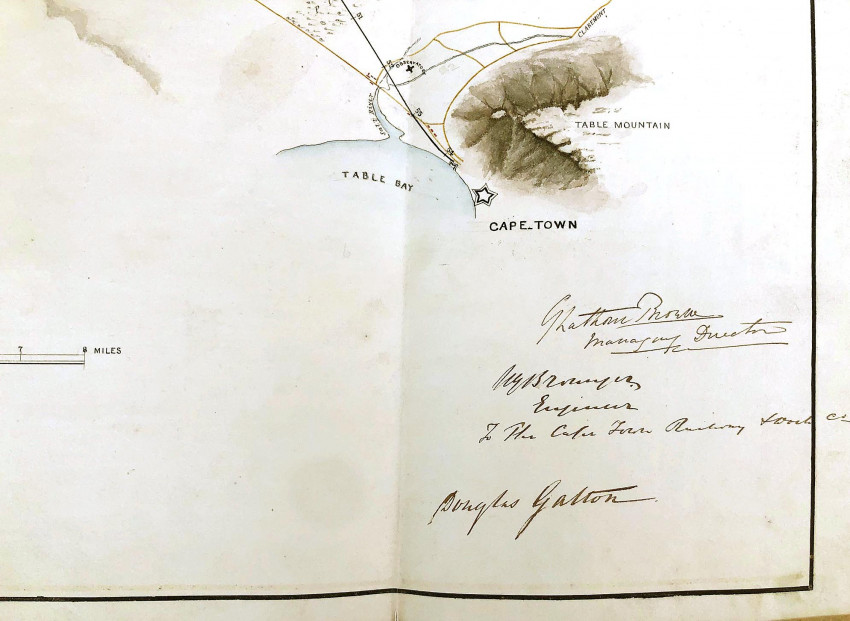 51
CLAREMONT
OBSERVATORY
Salt River
55
TABLE MOUNTAIN
TABLE BAY
CAPE-TOWN
7 8 MILES
Managing Director
Engineer
To The Cape Town Railway & Dock Co
Douglas Galton